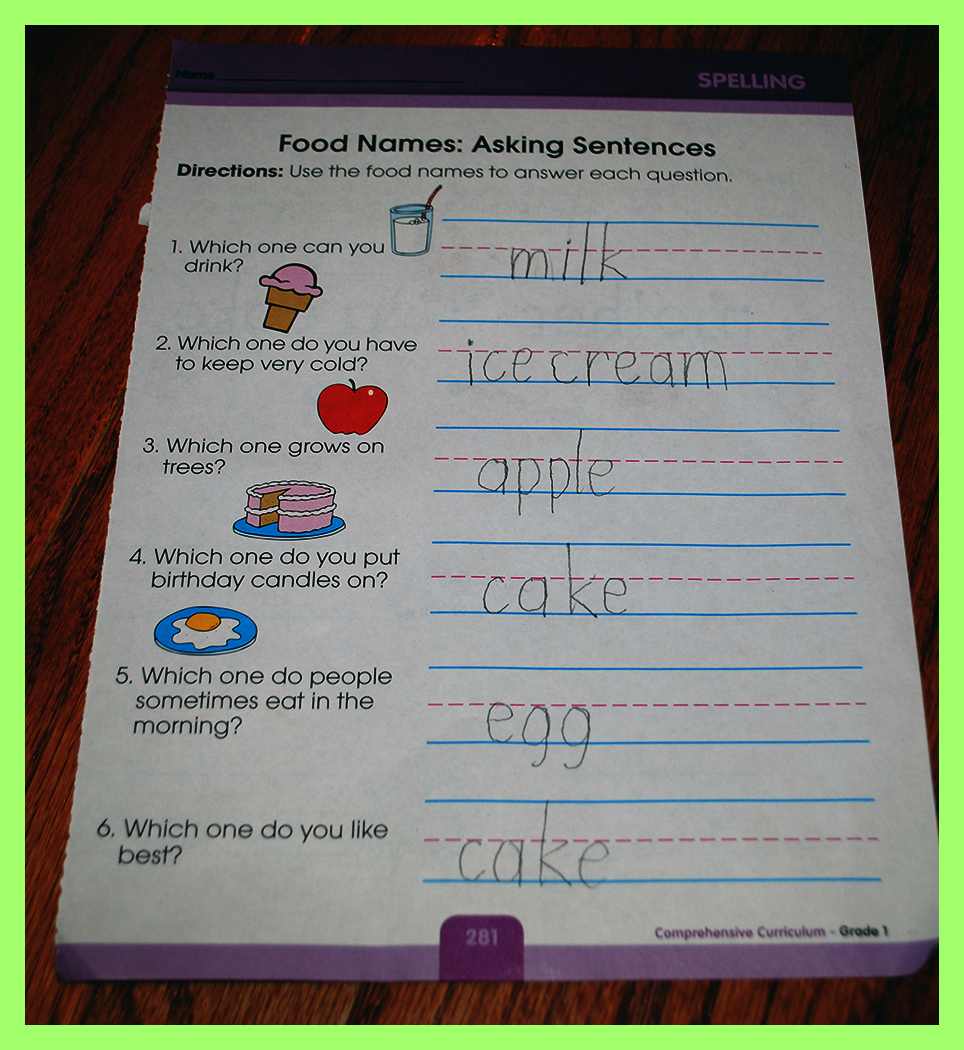 Name
SPELLING
Food Names: Asking Sentences
Directions: Use the food names to answer each question.
1. Which one can you
drink?
milk
2. Which one do you have
to keep very cold?
ice cream
3. Which one grows on
trees?
apple
4. Which one do you put
birthday candles on?
cake
5. Which one do people
sometimes eat in the
morning?
egg
6. Which one do you like
best?
cake
281
Comprehensive Curriculum - Grade 1